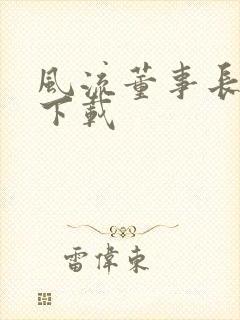 風流董事長
下載
雷偉東